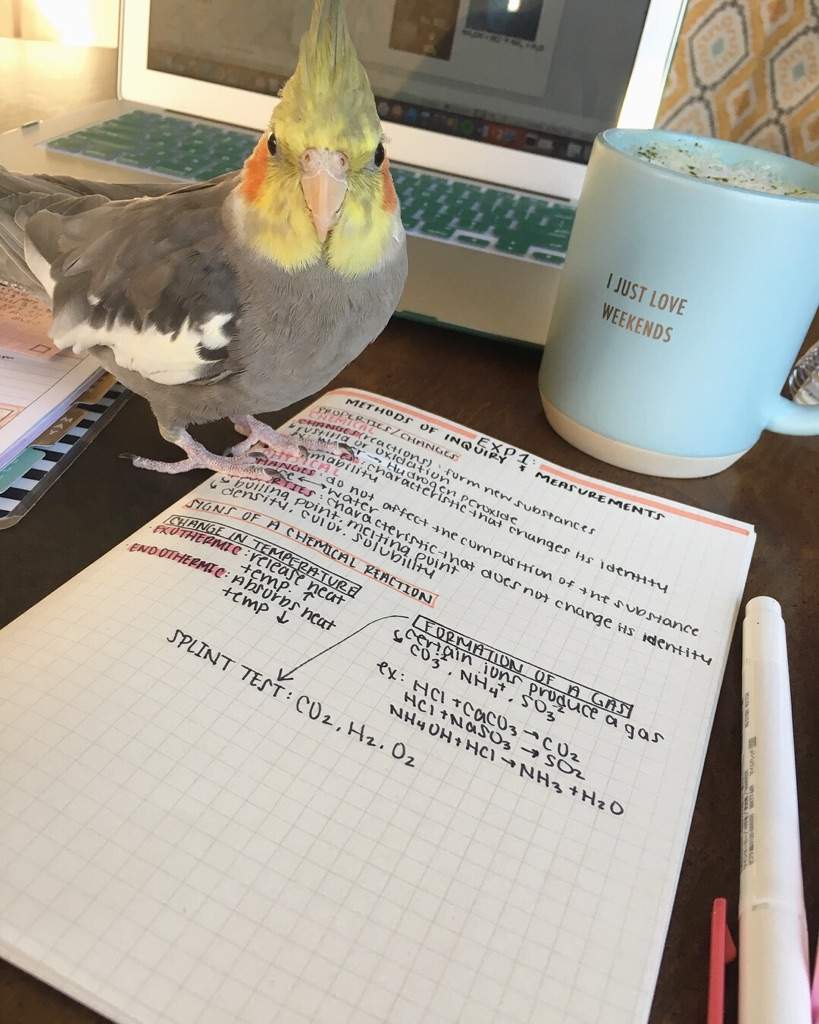 I JUST LOVE
WEEKENDS
EXP 1:
METHODS OF INQUIRY + MEASUREMENTS
PROPERTIES/CHANGES
CHEMICAL
CHANGES (reactions): form new substances
rusting or oxidation
Hydrogen peroxide
characteristic that changes its identity
do not affect the composition of the substance
water
characteristic that does not change its identity
boiling point, melting point
density, color, solubility
SIGNS OF A CHEMICAL REACTION
CHANGE IN TEMPERATURE
EXOTHERMIC: release heat
temp. ↑
ENDOTHERMIC: Absorbs heat
temp ↓
FORMATION OF A GAS
certain ions produce a gas
CO3²⁻, NH4⁺, SO3²⁻
ex: HCl + CaCO3 → CO2
HCl + NaSO3 → SO2
NH4OH + HCl → NH3 + H2O
SPLINT TEST: CO2, H2, O2